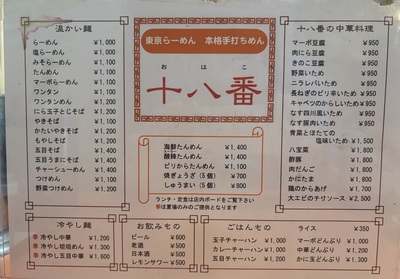 温かい麺
らーめん ¥1,000
塩らーめん ¥1,100
みそらーめん ¥1,100
たんめん ¥1,100
マーボらーめん ¥1,100
ワンタン ¥1,000
ワンタンめん ¥1,200
にら玉子とじそば ¥1,200
やきそば ¥1,100
かたいやきそば ¥1,200
もやしそば ¥1,200
五目そば ¥1,400
五目うまにそば ¥1,400
チャーシューめん ¥1,500
つけめん ¥1,100
野菜つけめん ¥1,200
東京らーめん 本格手打ちめん
おはこ
十八番
海鮮たんめん ¥1,400
酸辣たんめん ¥1,400
ピリからたんめん ¥1,100
焼ぎょうざ(5個) ¥700
しゅうまい(5個) ¥800
ランチ・定食は店内ボードをご覧下さい
季は夏場のみのご提供となります
十八番の中華料理
マーボ豆腐 ¥950
肉にら豆腐 ¥950
きのこ豆腐 ¥950
野菜いため ¥950
ニラレバいため ¥950
長ねぎのピリ辛いため ¥950
キャベツのからしいため ¥950
なす四川風いため ¥950
なす豚肉いため ¥950
青菜とほたての
塩味いため ¥1,500
八宝菜 ¥1,800
酢豚 ¥1,800
肉だんご ¥1,800
かにたま ¥1,800
鶏のからあげ ¥1,700
大エビのチリソース ¥2,500
冷やし麺
季 冷やし中華 ¥1,200
季 冷やし坦坦めん ¥1,300
季 冷やし五目中華 ¥1,600
お飲みもの
ビール ¥600
老酒 ¥500
日本酒 ¥500
レモンサワー ¥500
ごはんもの
玉子チャーハン ¥1,000
カレーチャーハン ¥1,000
五目チャーハン ¥1,200
ライス ¥350
マーボどんぶり ¥1,000
中華どんぶり ¥1,200
かに玉どんぶり ¥1,200